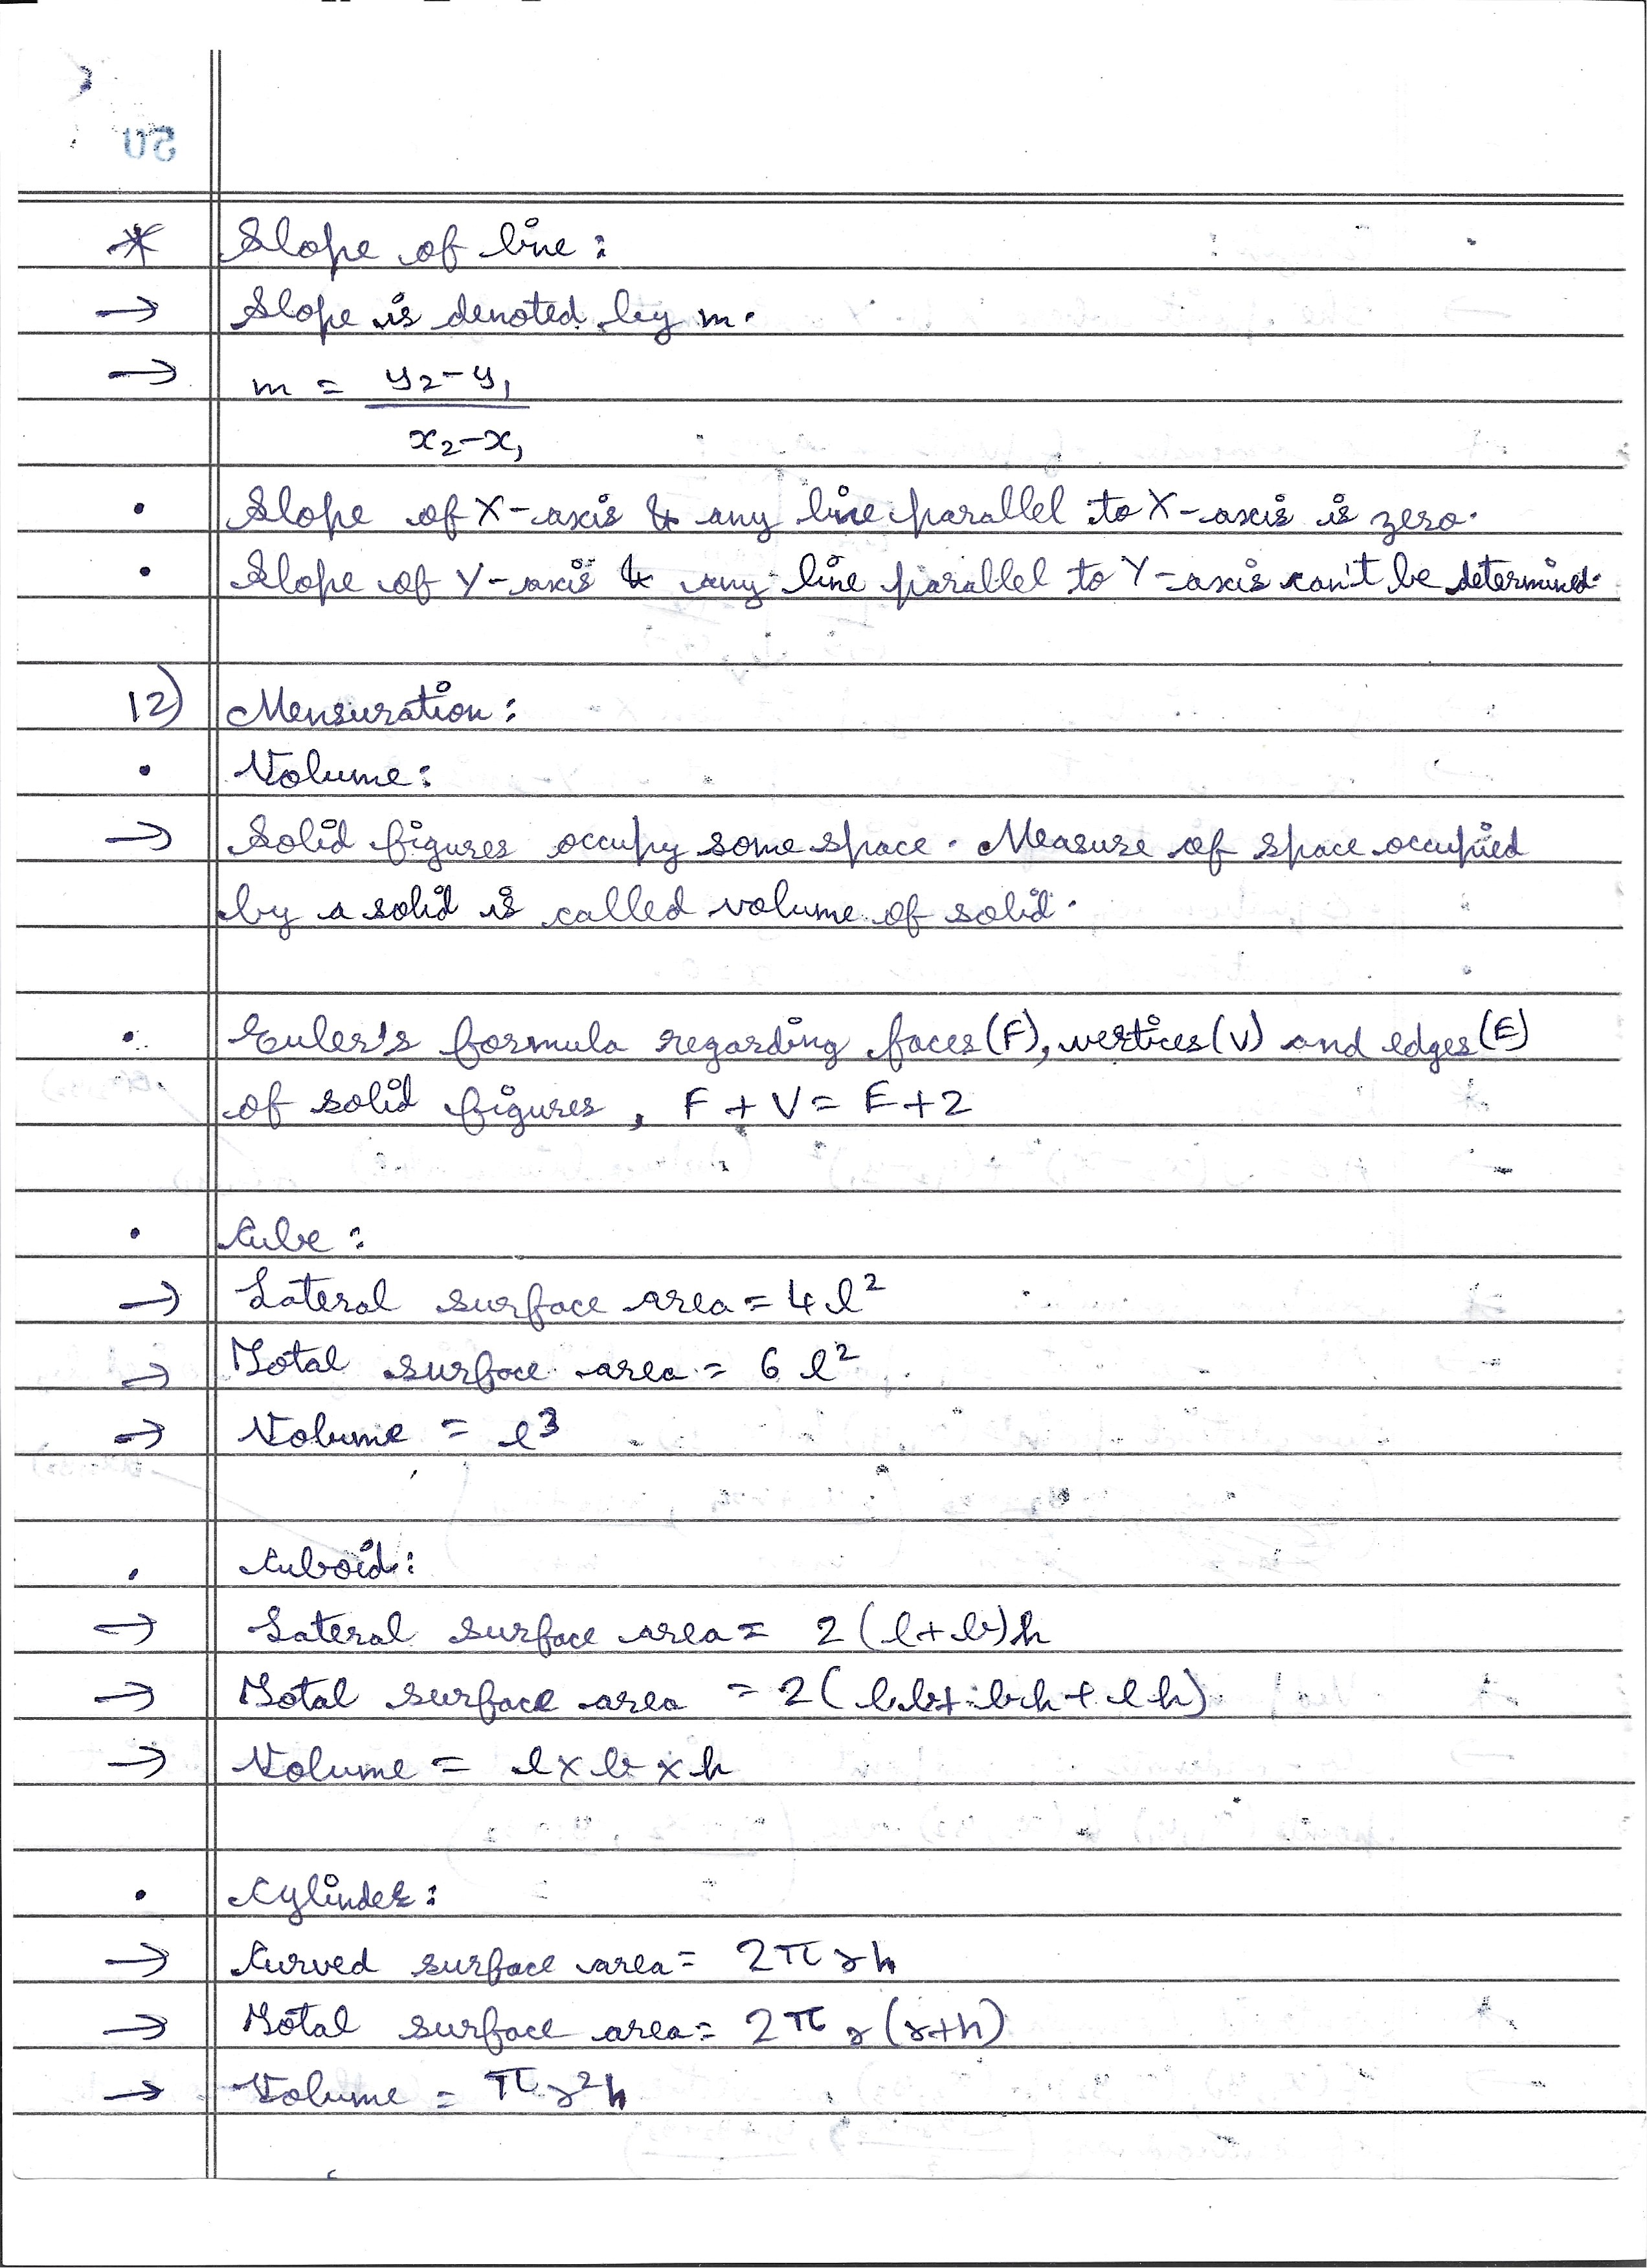 * Slope of line :
→ Slope is denoted by m.
→ m = y₂-y₁
x₂-x₁
• Slope of X-axis & any line parallel to X-axis is zero.
• Slope of Y-axis & any line parallel to Y-axis can't be determined.
12) Mensuration :
• Volume :
→ Solid figures occupy some space. Measure of space occupied
by a solid is called volume of solid.
• Euler's formula regarding faces (F), vertices (V) and edges (E)
of solid figures, F + V = E + 2
• Cube :
→ Lateral surface area = 4l²
→ Total surface area = 6 l²
→ Volume = l³
• Cuboid :
→ Lateral surface area = 2 (l+b)h
→ Total surface area = 2 (lb + bh + lh)
→ Volume = l x b x h
• Cylinder :
→ Curved surface area = 2πrh
→ Total surface area = 2πr (r+h)
→ Volume = πr²h